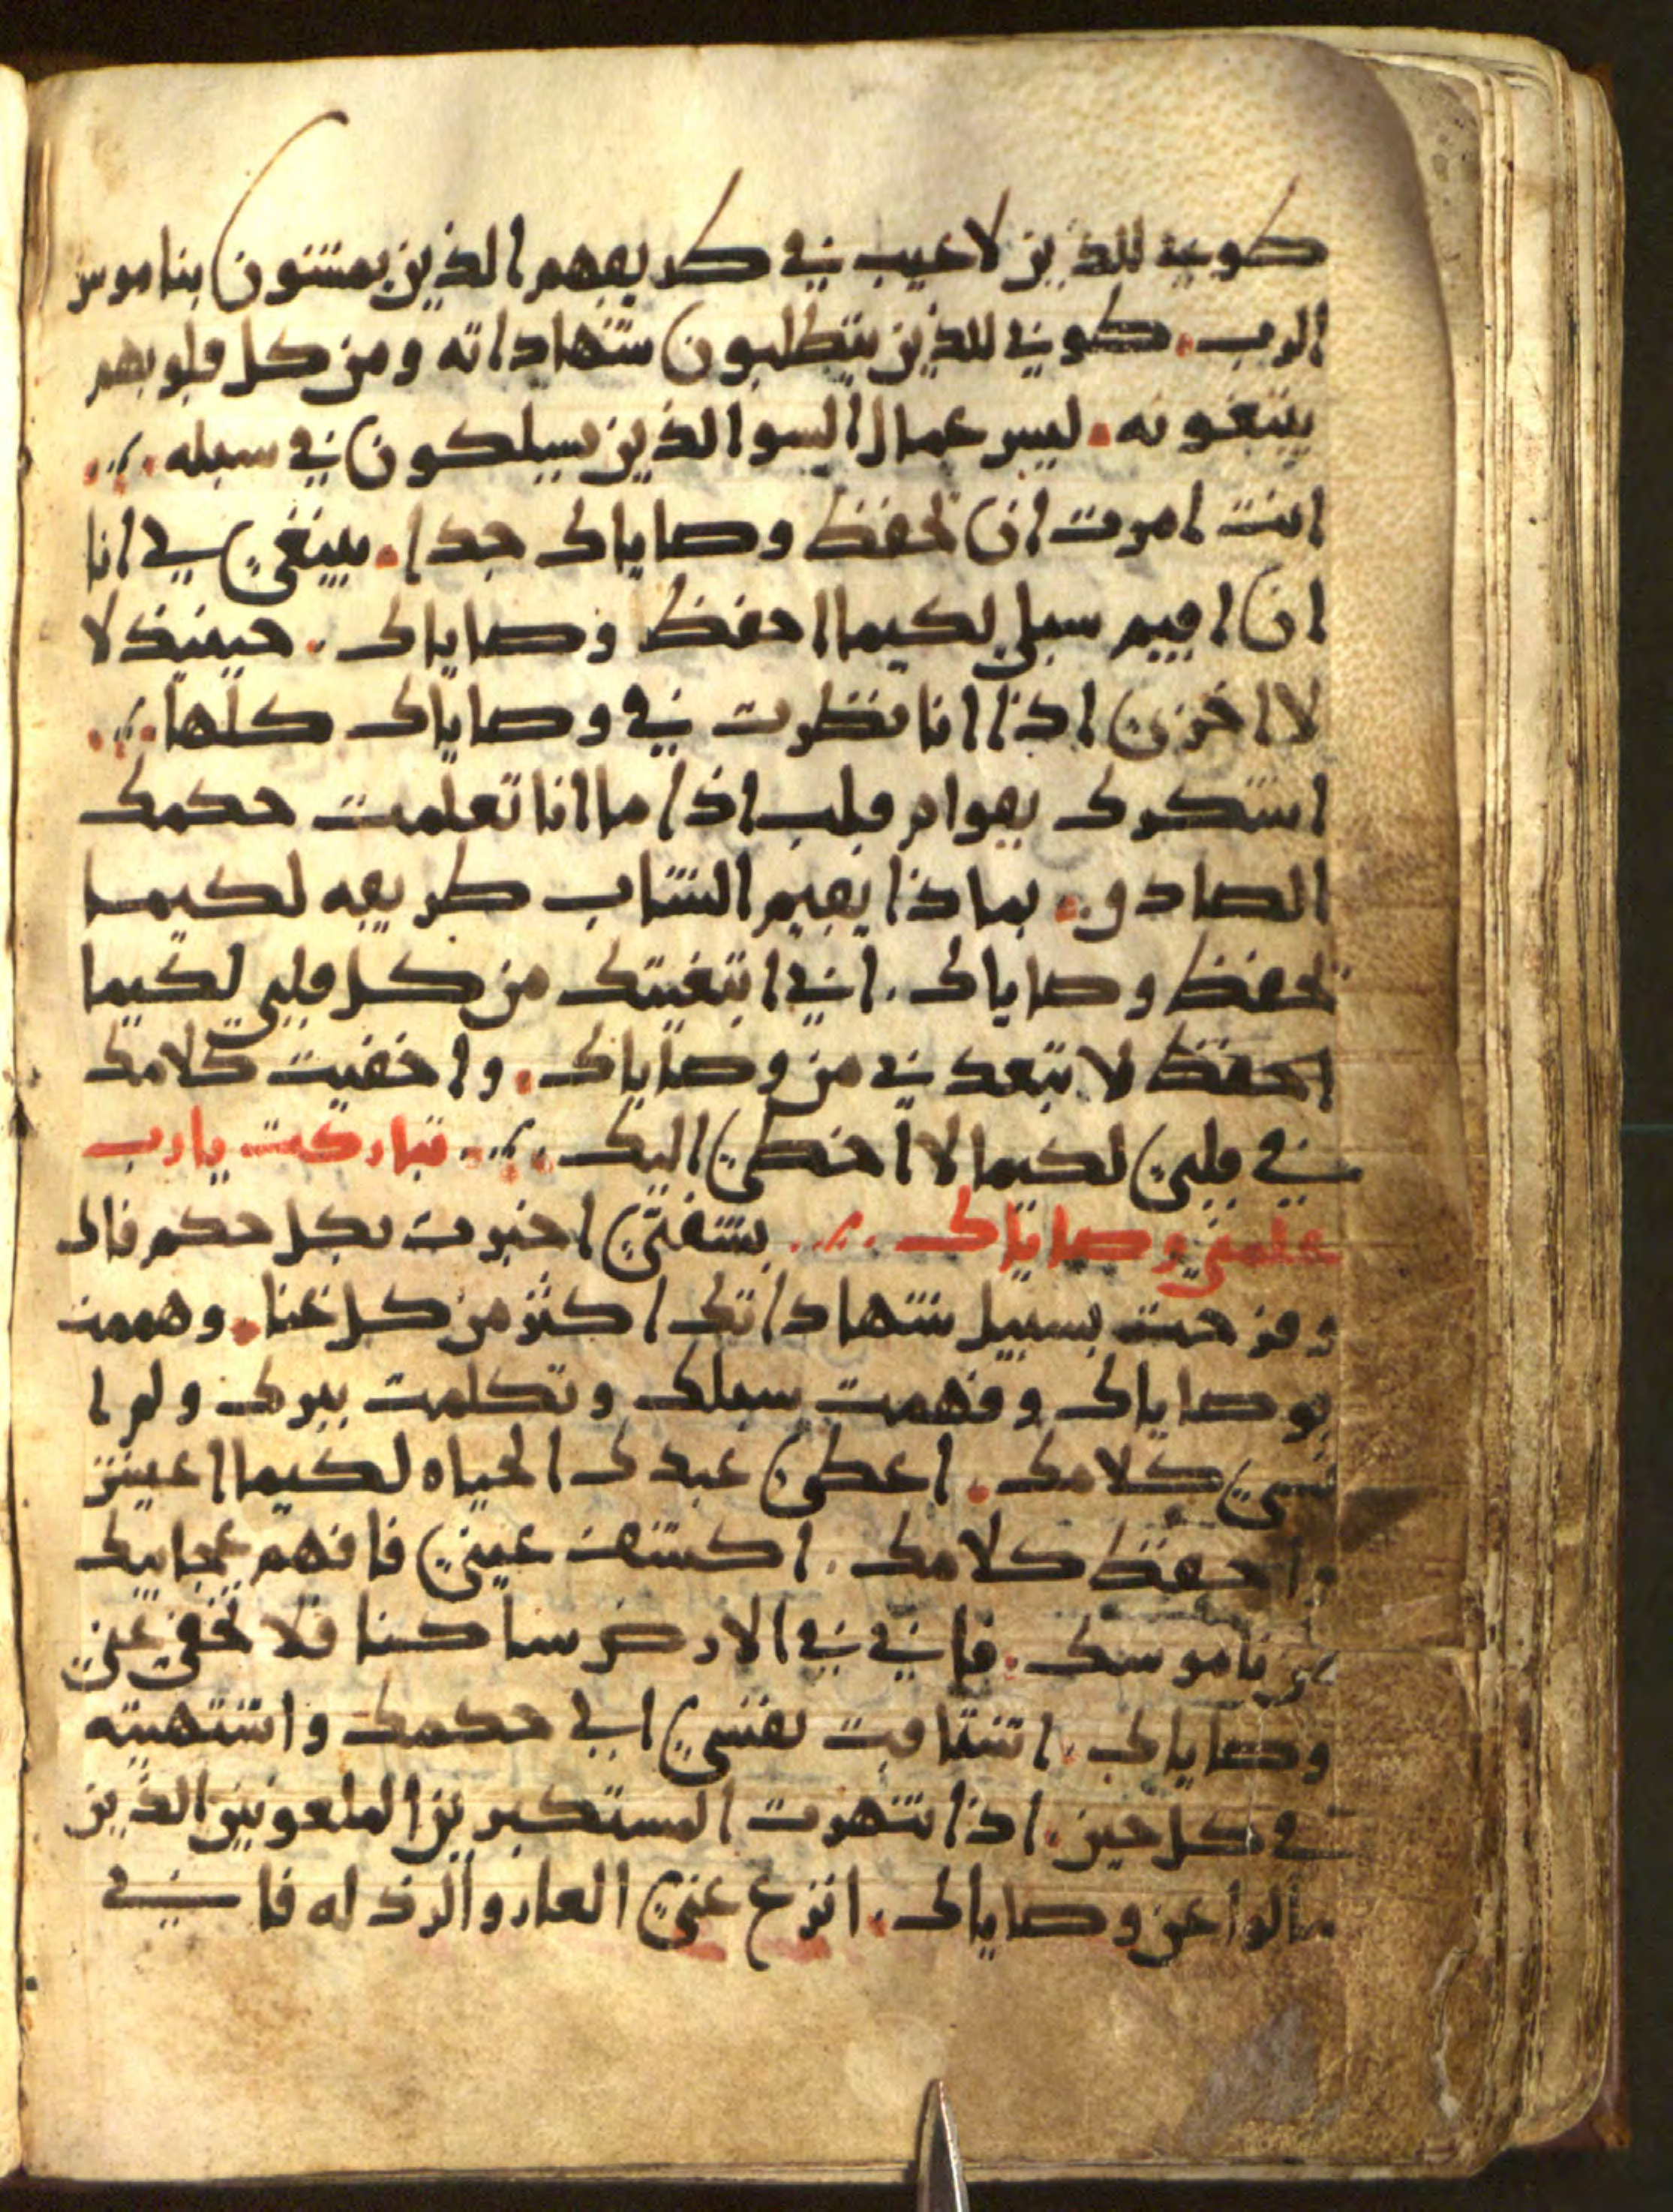 طوبى للذين لا عيب في طريقهم الذين يمشون بناموس
الرب. طوبى للذين يتطلبون شهاداته ومن كل قلوبهم
يبتغونه. ليس عمال السو الذين يسلكون في سبله
انت امرت ان تحفظ وصاياك جدا. ينبغي لي انا
ان اقيم سبلي لكيما احفظ وصاياك. حينيذ لا
لا اخزى اذا انا نظرت في وصاياك كلها
اشكرك بقوام قلب اذا ما انا تعلمت حكمك
الصادق. بماذا يقيم الشاب طريقه لكيما
تحفظ وصاياك. اني ابتغيتك من كل قلبي لكيما
احفظ لا تبعدني من وصاياك. واخفيت كلامك
في قلبي لكيما لا اخطي اليك. تباركت يا رب
علمني وصاياك. بشفتي اخبرت بكل حكم فاك
وفرحت بسبيل شهاداتك اكثر من كل غنا. وهممت
بوصاياك وفهمت سبلك وتكلمت ببرك ولم ا
نسى كلامك. اعطي عبدك الحياه لكيما اعيش
واحفظ كلامك. اكشف عيني فافهم عجايبك
من ناموسك. فاني في الارض ساكنا فلا تخفي عني
وصاياك. اشتاقت نفسي الى حكمك واشتهيته
في كل حين. اذا انتهرت المستكبرين الملعونين الذين
مالوا عن وصاياك. انزع عني العار والرذله فاني